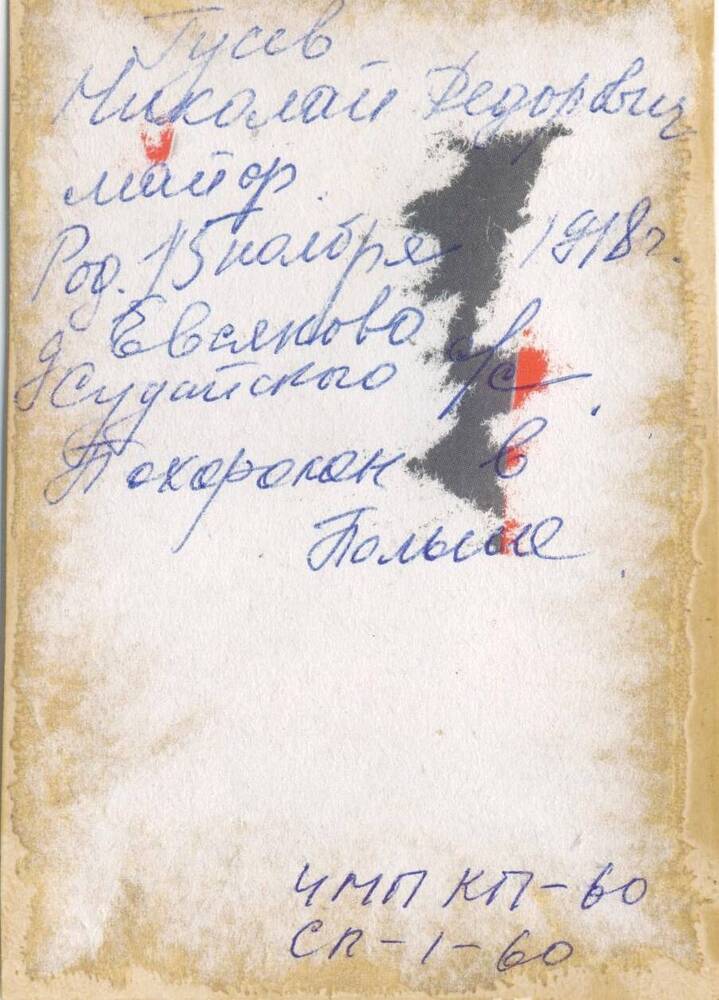 Гусев
Николай Федорович
майор.
Род. 15 ноября 1918 г.
д Евсяково
Судайского с/с.
Похоронен в
Польше.
ЧМП КП-60
СП-1-60